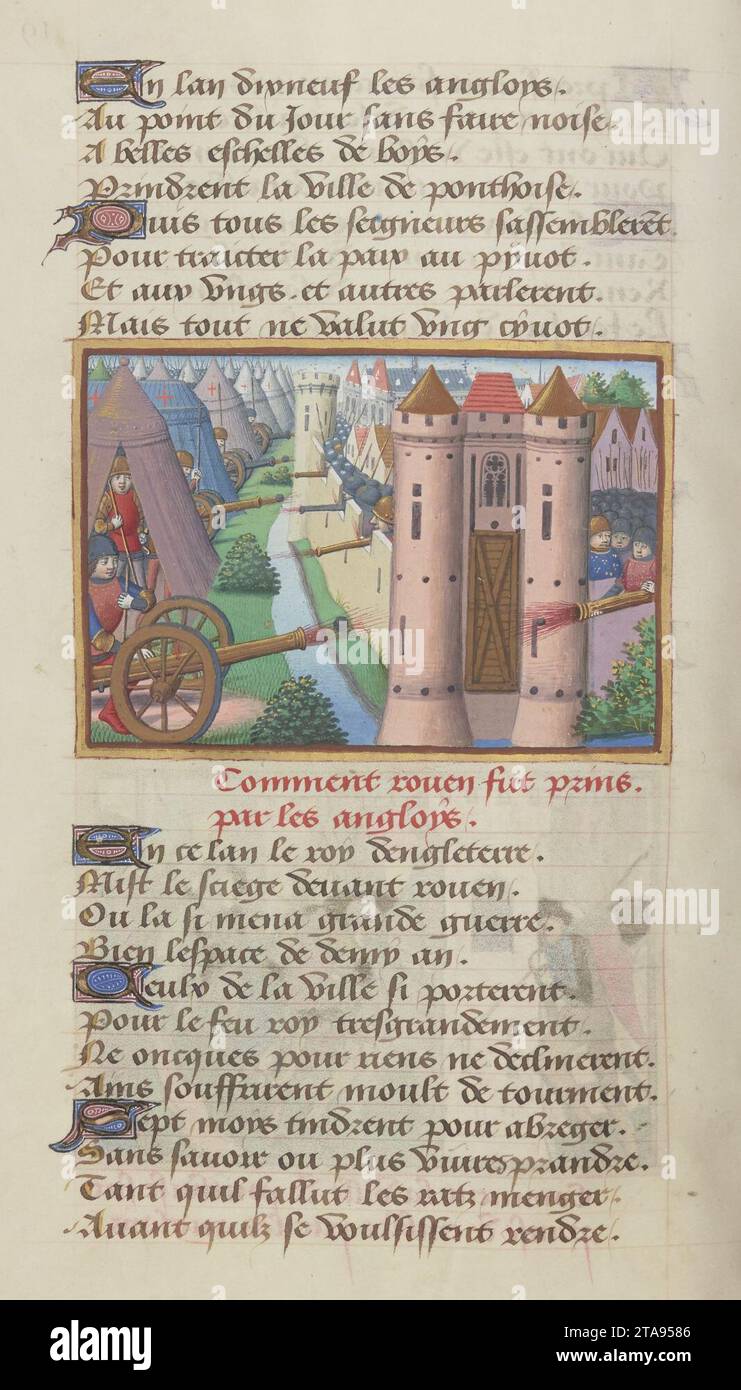 En lan dixneuf les angloys.
Au point du Jour sans faire noise.
A belles eschelles de boys.
Prindrent la ville de ponthoise.
Puis tous les seigneurs sassemblerẽt.
Pour traicter la paix au pyuot.
Et aux vngs. et autres parlerent.
Mais tout ne valut vng cyuot.
Comment rouen fut prins.
par les angloys.
En ce lan le roy dengleterre.
Mist le sciege deuant rouen.
Ou la si mena grande guerre.
Bien lespace de demy an.
Ceulx de la ville si porterent.
Pour le feu roy tresgrandement.
Ne oncques pour riens ne declinerent.
Ains souffrirent moult de tourment.
Sept moys tindrent pour abreger.
Sans sauoir ou plus viures prandre.
Tant quil fallut les ratz menger.
Auant quilz se voulsissent rendre.
alamy
alamy
Image ID: 2TA9586
www.alamy.com